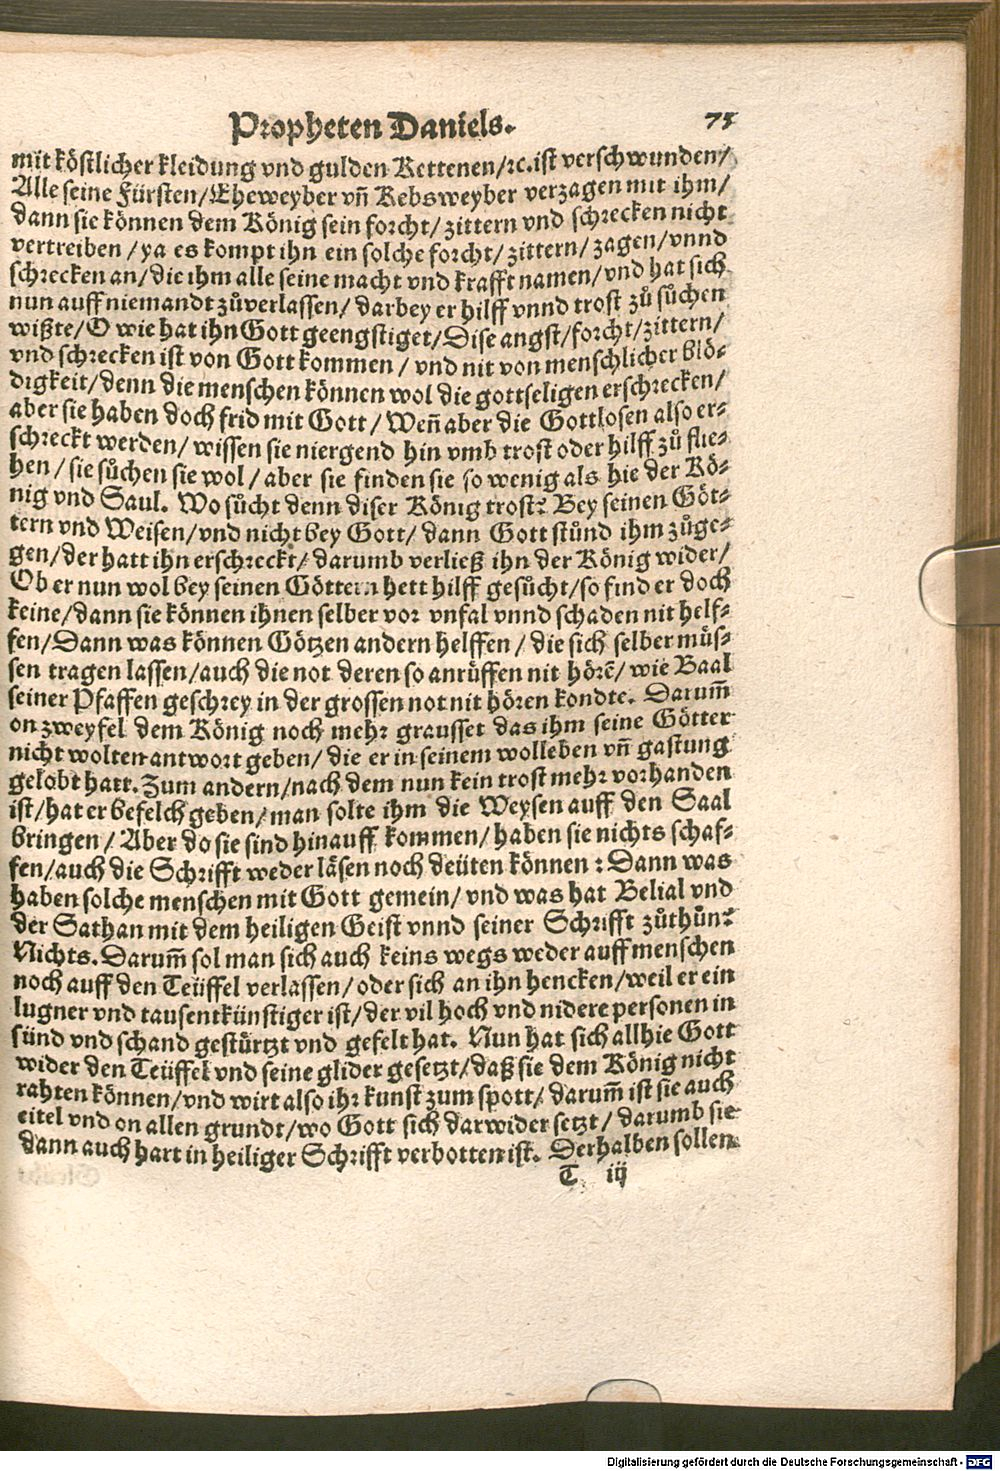 Propheten Daniels. 75
mit köstlicher kleidung vnd gulden Kettenen/ꝛc. ist verschwunden/
Alle seine Fürsten/Eheweyber vñ Kebsweyber verzagen mit ihm/
dann sie können dem König sein forcht/zittern vnd schrecken nicht
vertreiben/ya es kompt ihn ein solche forcht/zittern/zagen/vnnd
schrecken an/die ihm alle seine macht vnd krafft namen/vnd hat sich
nun auff niemandt zůverlassen/darbey er hilff vnnd trost zů sůchen
wißte/O wie hat ihn Gott geengstiget/Dise angst/forcht/zittern/
vnd schrecken ist von Gott kommen/vnd nit von menschlicher blö⸗
digkeit/denn die menschen können wol die gottseligen erschrecken/
aber sie haben doch frid mit Gott/Weñ aber die Gottlosen also er⸗
schreckt werden/wissen sie niergend hin vmb trost oder hilff zů flie⸗
hen/sie sůchen sie wol/aber sie finden sie so wenig als hie der Kö⸗
nig vnd Saul. Wo sůcht denn diser König trost? Bey seinen Göt⸗
tern vnd Weisen/vnd nicht bey Gott/dann Gott stůnd ihm zůge⸗
gen/der hatt ihn erschreckt/darumb verließ ihn der König wider/
Ob er nun wol bey seinen Göttern hett hilff gesůcht/so find er doch
keine/dann sie können ihnen selber vor vnfal vnnd schaden nit helf⸗
fen/Dann was können Götzen andern helffen/die sich selber müs⸗
sen tragen lassen/auch die not deren so anrüffen nit hörẽ/wie Baal
seiner Pfaffen geschrey in der grossen not nit hören kondte. Darum̃
on zweyfel dem König noch mehr grausset das ihm seine Götter
nicht wolten antwort geben/die er in seinem wolleben vñ gastung
gelobt hatt. Zum andern/nach dem nun kein trost mehr vorhanden
ist/hat er befelch geben/man solte ihm die Weysen auff den Saal
bringen/Aber do sie sind hinauff kommen/haben sie nichts schaf⸗
fen/auch die Schrifft weder läsen noch deüten können: Dann was
haben solche menschen mit Gott gemein/vnd was hat Belial vnd
der Sathan mit dem heiligen Geist vnnd seiner Schrifft zůthůn?
Nichts. Darum̃ sol man sich auch keins wegs weder auff menschen
noch auff den Teüffel verlassen/oder sich an ihn hencken/weil er ein
lugner vnd tausentkünstiger ist/der vil hoch vnd nidere personen in
sünd vnd schand gestürtzt vnd gefelt hat. Nun hat sich allhie Gott
wider den Teüffel vnd seine glider gesetzt/daß sie dem König nicht
rahten können/vnd wirt also ihr kunst zum spott/darum̃ ist sie auch
eitel vnd on allen grundt/wo Gott sich darwider setzt/darumb sie
dann auch hart in heiliger Schrifft verbotten ist. Derhalben sollen
T iij
Digitalisierung gefördert durch die Deutsche Forschungsgemeinschaft - DFG